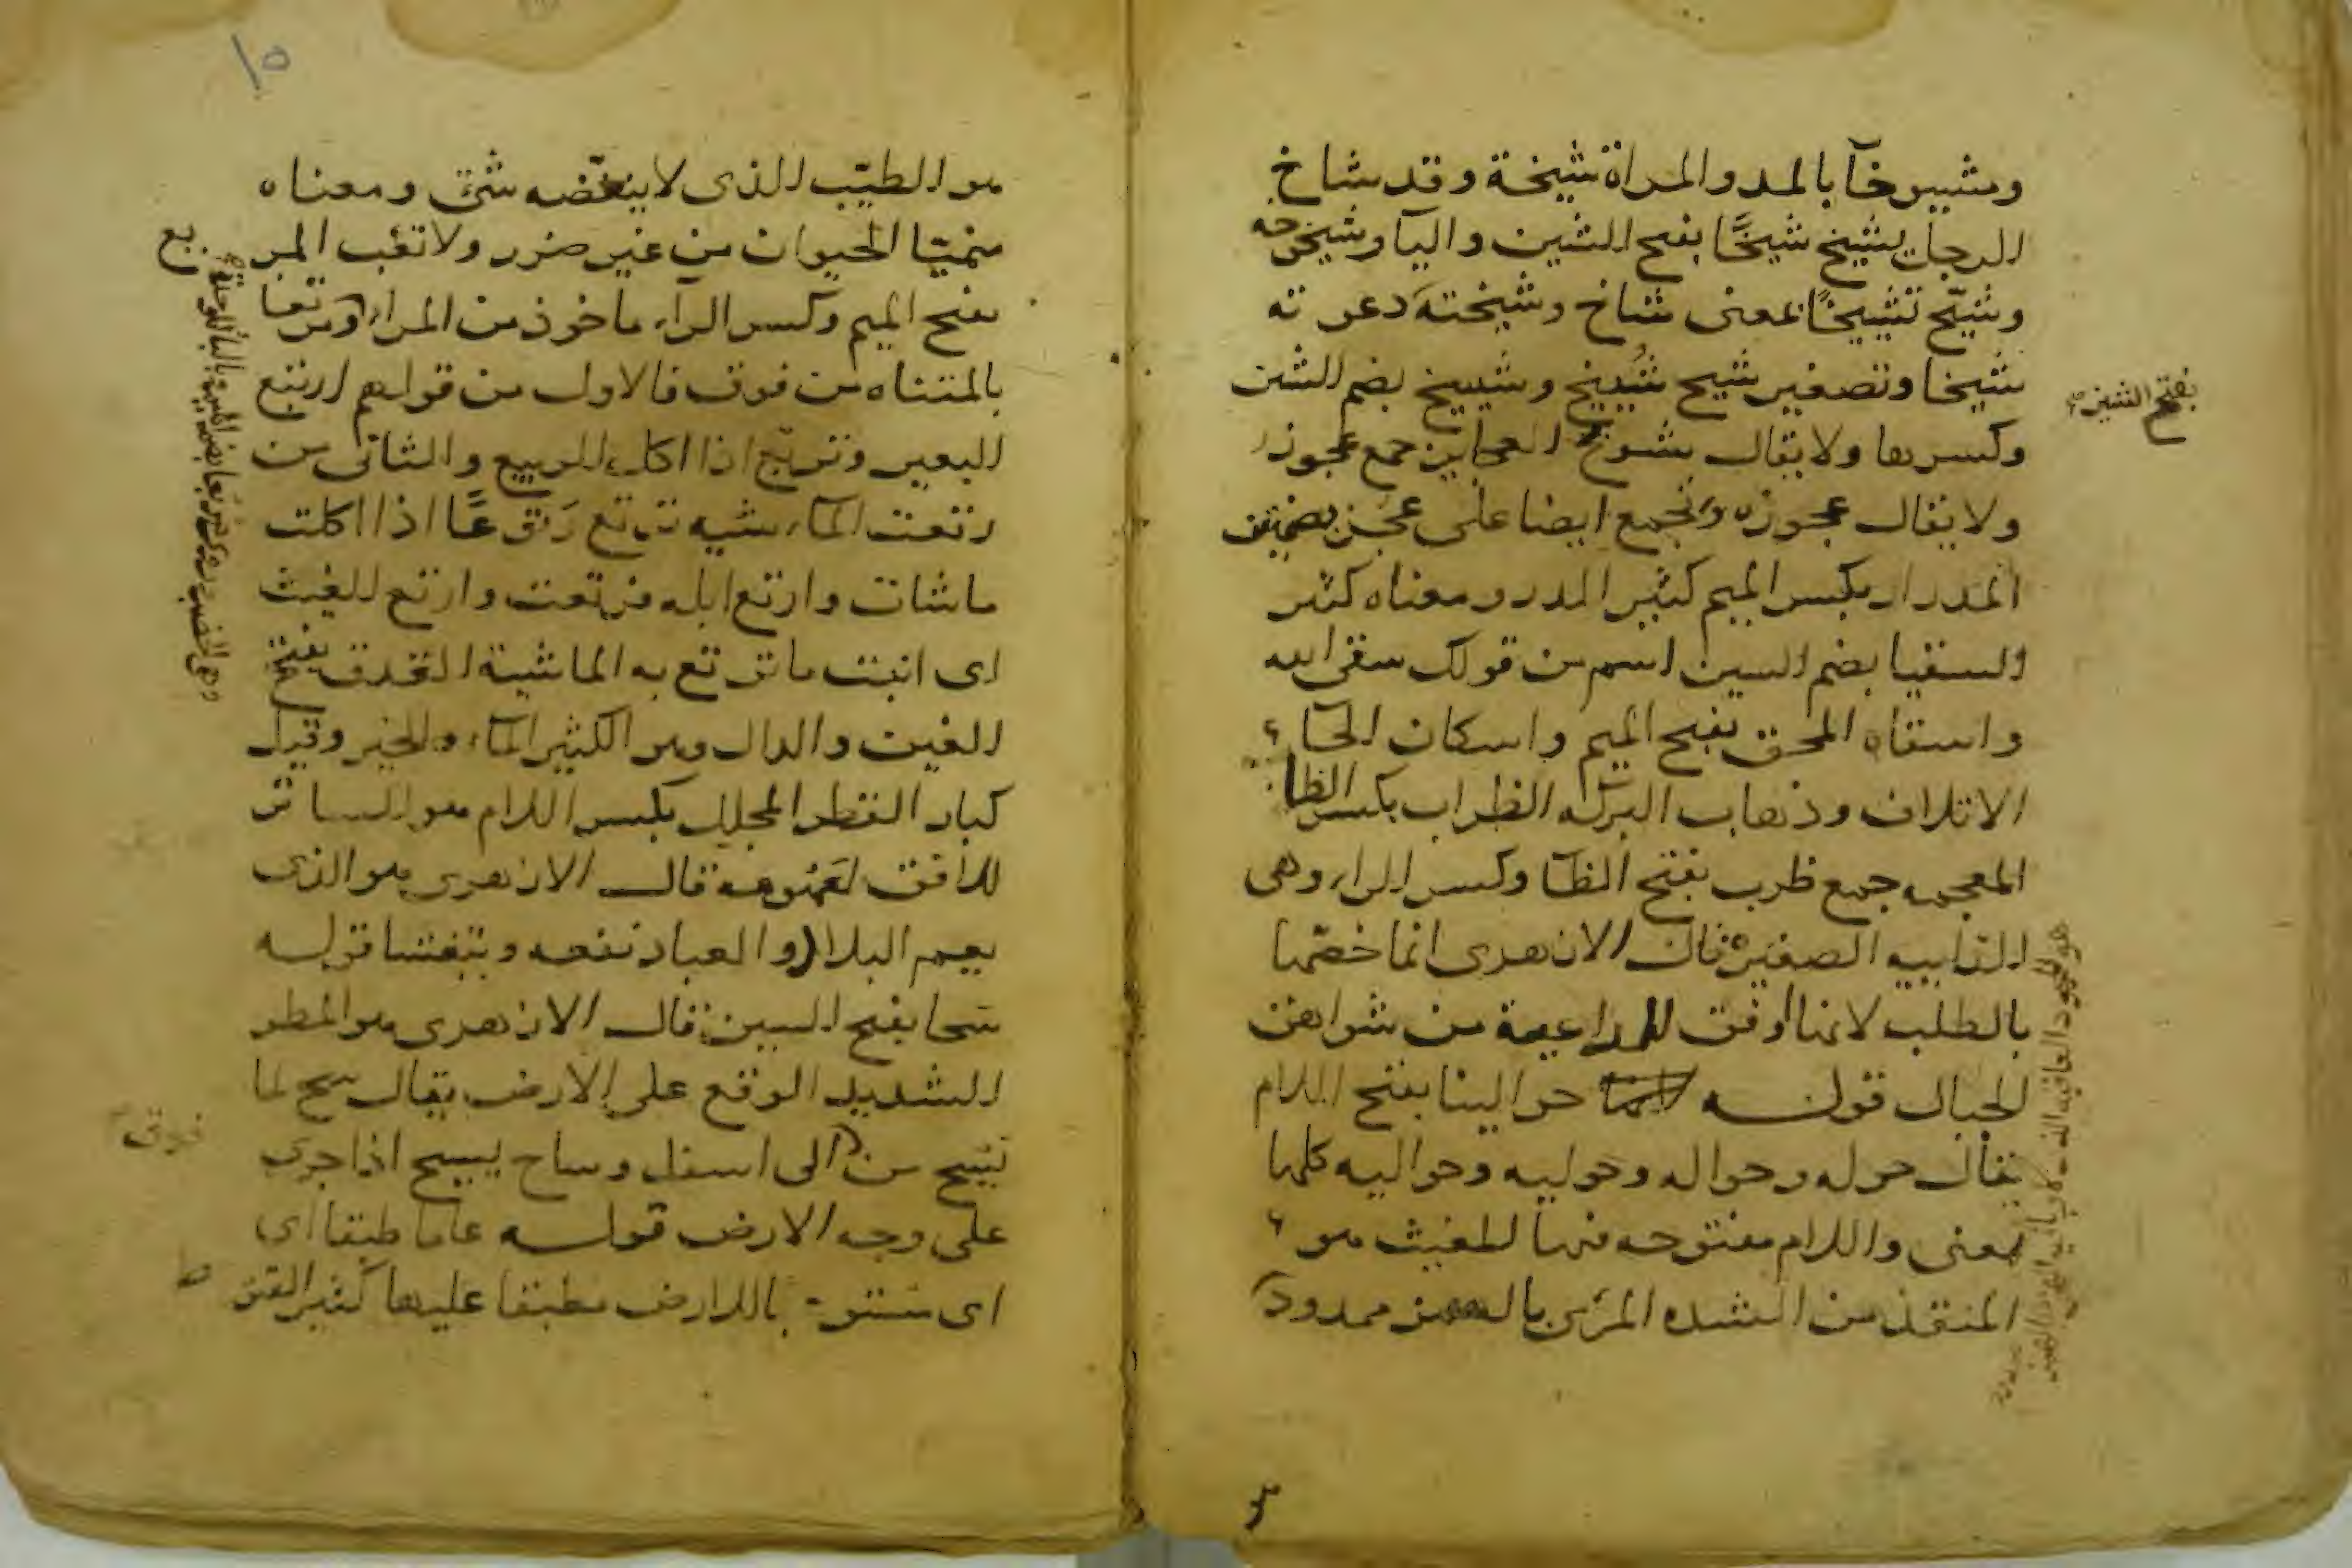 ومشيوخآ بالمد والمراة شيخة وقد شاخ
الرجل يشيخ شيخًا بفتح الشين واليا وشيخوخه
وشيّخ تشييخًا بمعنى شاخ وشيخته دعوته
شيخا وتصغير شيخ شُييخ وشييخ بضم الشين
بفتح الشين
وكسرها ولا يقال شويخ العجايز جمع عجوز
ولا يقال عجوزه وتجمع ايضا على عجز بضمتين
المدرار بكسر الميم كثير الدر ومعناه كثير
السقيا بضم السين اسم من قولك سقى الله
واسقاه المحق بفتح الميم واسكان الحآ
الاتلاف وذهاب البركه الظراب بكسر الظا
المعجمه جمع ظرب بفتح الظآ وكسر الراء وهى
الرابيه الصغيرة قال الازهرى انما خصها
بالطلب لانها اوفق للراعية من شواهق
الجبال قوله حوالينا بفتح اللام
يقال حوله وحواله وحوليه وحواليه كلها
بمعنى واللام مفتوحه فيها المغيث هو
المنقذ من الشده المرئ بالهمز ممدود
هو الطيّب الذى لا ينغّصه شئ ومعناه
منميّا الحيوان من غير ضرر ولا تعب المر
يع
بفتح الميم وكسر الراء ماخوذ من المراعة ومرتعا
بالمثناه من فوق فالاول من قولهم ارتبع
البعير وتربّع اذا اكل الربيع والثانى من
رتعت الماشيه ترتع رتوعًا اذا اكلت
ماشات وارتع ابله فرتعت وارتع الغيث
اى انبت ما ترتع به الماشية الغدق بفتح
الغين والدال وهو الكثير المآء والخير وقيل
كبار القطر المجلل بكسر اللام هو الساتر
للافق لعمومه قال الازهرى هو الذى
يعم البلاد والعباد نفعه ويتغشا قوله
سحا بفتح السين قال الازهرى هو المطر
الشديد الوقع على الارض يقال سح لما
يسح من الى اسفل وساح يسيح اذا جرى
فوق
على وجه الارض قوله عاما طبقا اى
اى بالارض مطبقا عليها كثير القنو
ط
١٥